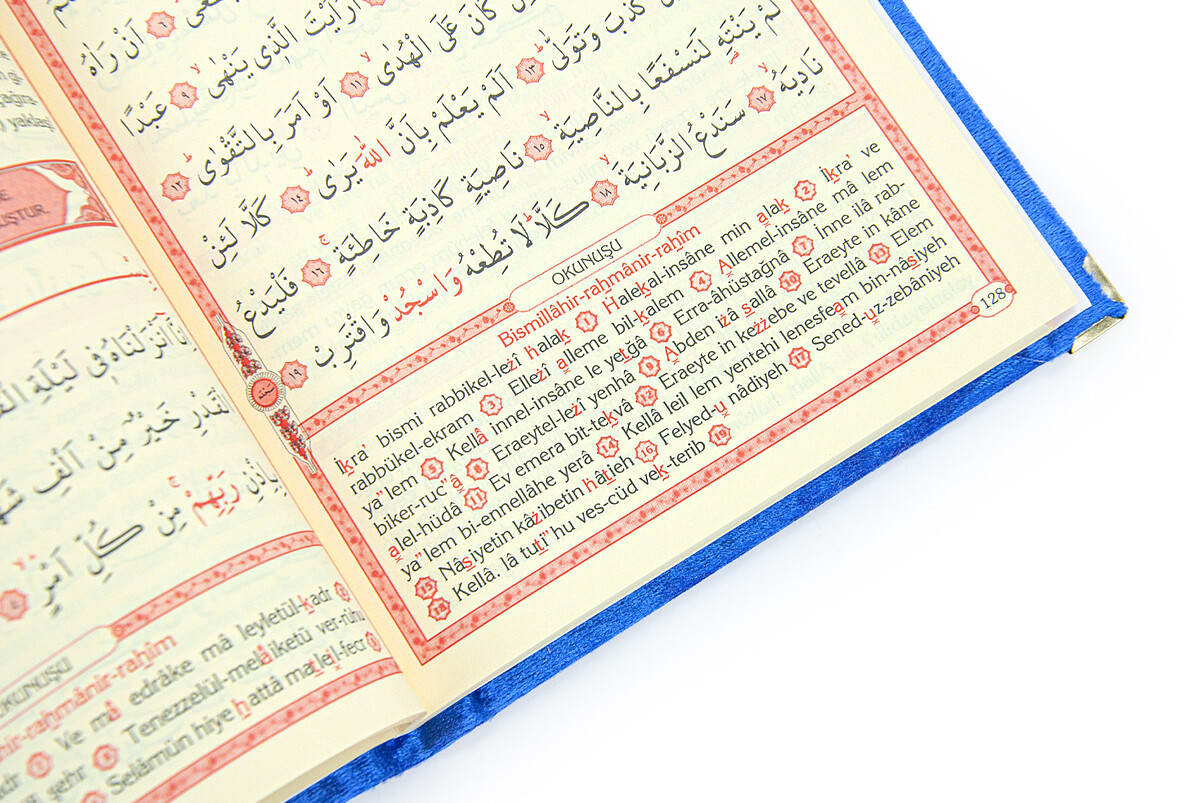 اَنْ رَاٰهُ
اَرَاَيْتَ الَّذٖى يَنْهٰىۙ ٩ عَبْدًا
كَانَ عَلَى الْهُدٰىۙ ١١ اَوْ اَمَرَ بِالتَّقْوٰىۜ ١٢
كَذَّبَ وَتَوَلّٰىۜ ١٣ اَلَمْ يَعْلَمْ بِاَنَّ اللّٰهَ يَرٰىۜ ١٤ كَلَّا لَئِنْ
لَمْ يَنْتَهِ لَنَسْفَعًا بِالنَّاصِيَةِۙ ١٥ نَاصِيَةٍ كَاذِبَةٍ خَاطِئَةٍۚ ١٦ فَلْيَدْعُ
نَادِيَهُۙ ١٧ سَنَدْعُ الزَّبَانِيَةَۙ ١٨ كَلَّاۜ لَا تُطِعْهُ وَاسْجُدْ وَاقْتَرِبْ ١٩
OKUNUŞU
Bismillâhir-rahmânir-rahîm
İkra' bismi rabbikel-lezî halak 1 Halekal-insâne min alak 2 İkra' ve
rabbükel-ekram 3 Ellezî alleme bil-kalem 4 Allemel-insâne mâ lem
ya"lem 5 Kellâ innel-insâne le yetgâ 6 Erra-âhüstağnâ 7 İnne ilâ rab-
biker-ruc"â 8 Eraeytel-lezî yenhâ 9 Abden izâ sallâ 10 Eraeyte in kâne
alel-hüdâ 11 Ev emera bit-tekvâ 12 Eraeyte in kezzebe ve tevellâ 13 Elem
ya"lem bi-ennellâhe yerâ 14 Kellâ leil lem yentehi lenesfeam bin-nâsiyeh
15 Nâsiyetin kâzibetin hâtieh 16 Felyed-u nâdiyeh 17 Sened-uz-zebâniyeh
18 Kellâ. lâ tuti"hu ves-cüd vek-terib 19
128
yaklaşı
UŞTUR
خَيْرٌ مِنْ اَلْفِ
رَبِّهِمْۚ مِنْ كُلِّ اَمْرٍۙ ٤
OKUNUŞU
nir-rahmânir-rahîm
1 Ve mâ edrâke mâ leyletül-kadr 2
şehr 3 Tenezzelül-melâiketü ver-rûhu
Selâmün hiye hattâ matlei'l-fecr 5